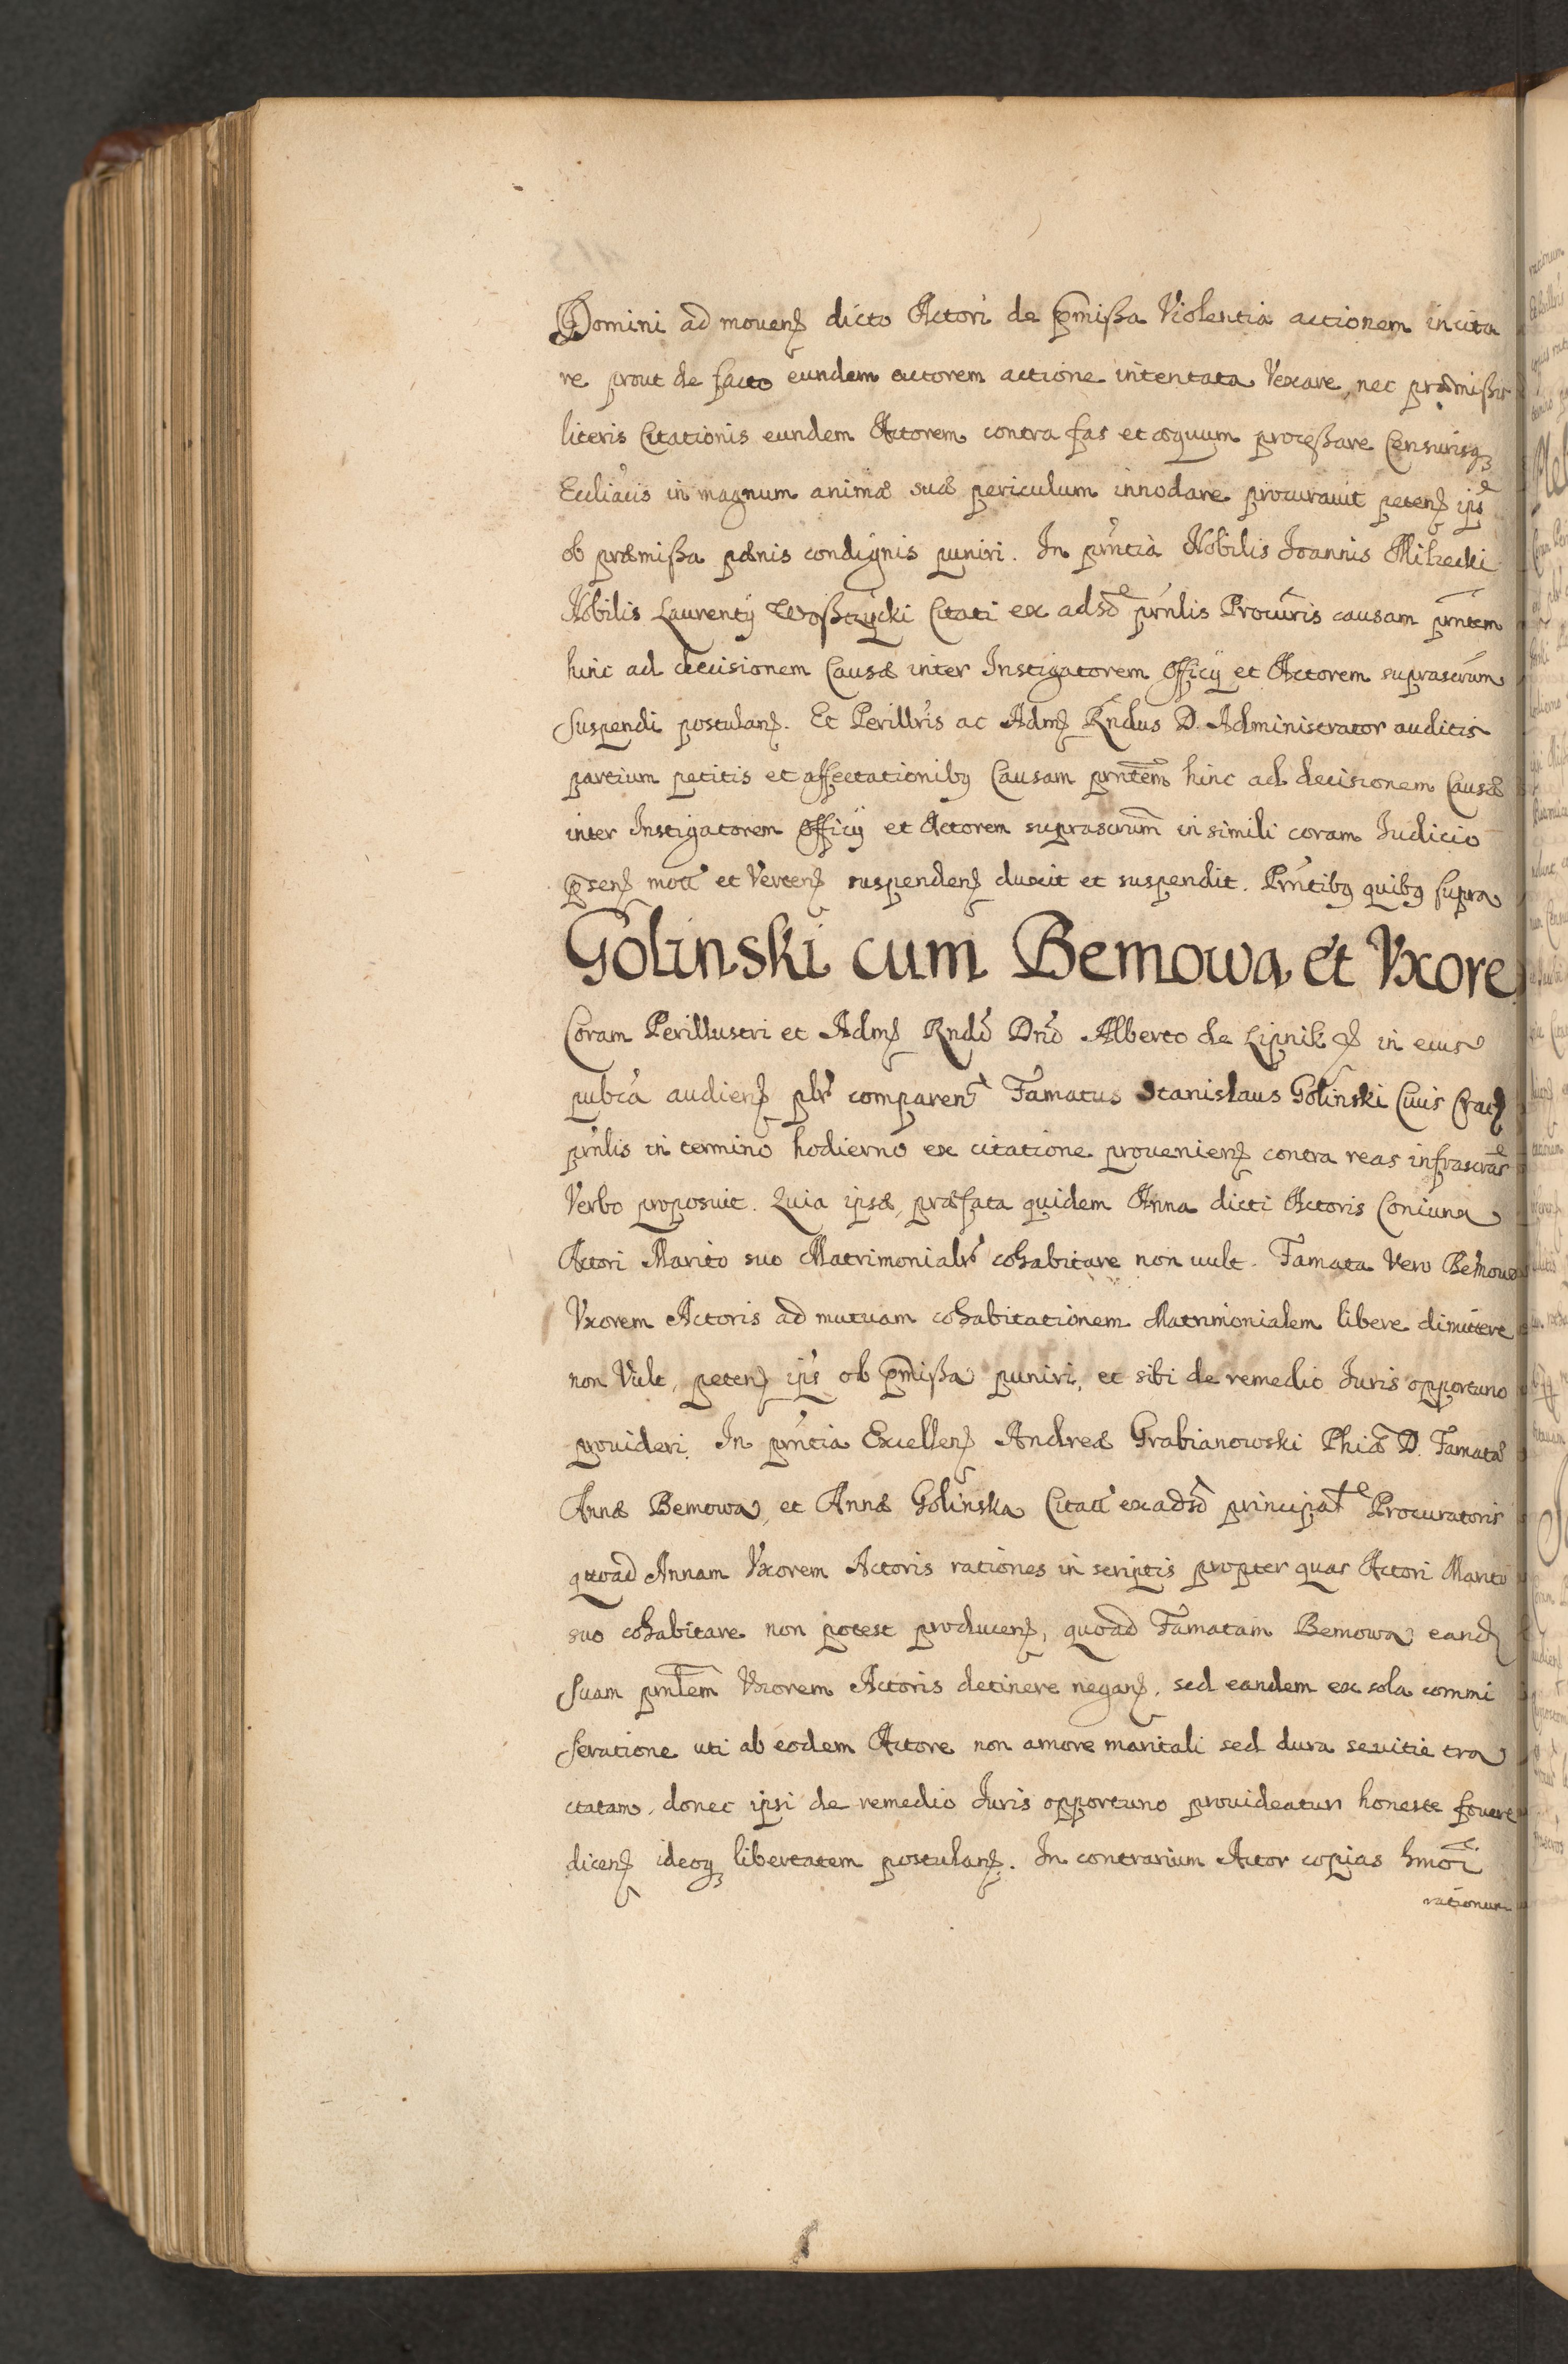 Domini ad mouenꝭ dicto Actori de p̃missa Violentia actionem incita
re prout de facto eundem actorem actione intentata Vexare, nec præmissis
literis Citationis eundem Actorem contra fas et æquum processare Censurisqꝫ
Eccliacis in magnum animæ suæ periculum innodare procurauit petenꝭ ips
ob præmissa pænis condignis puniri. In pr̃ntia Nobilis Joannis Milzecki
Nobilis Laurentÿ Woszczÿcki Citati ex adsõ prñlis Procuris causam prñtem
hinc ad decisionem Causæ inter Instigatorem Officÿ et Actorem suprascrum̃
Suspendi postulanꝭ. Et Perillris ac Admꝭ Rñdus D. Administrator auditis
partium petitis et affectationibꝯ Causam prñtem hinc ad decisionem Causæ
inter Instigatorem Officÿ et Actorem suprascrum̃ in simili coram Iudicio
p̃senꝭ mota et Vertenꝭ suspendenꝭ duxit et suspendit. Prñtibꝯ quibꝯ supra
Golinski cum Bemowa et Vxore
Coram Perillustri et Admꝭ Rndõ Dnõ Alberto de Lipnik ꝭ in eius
pubca audienꝭ plr comparenꝭ Famatus Stanislaus Golinski Ciuis Cracꝭ
prñlis in termino hodierno ex citatione prouenienꝭ contra reas infrascras
Verbo proposuit. Quia ipsæ, præfata quidem Anna dicti Actoris Coniunx
Actori Marito suo Matrimonialr cohabitare non uult. Famata Vero Bemowa
Vxorem Actoris ad mutuam cohabitationem Matrimonialem libere dimittere
non Vult, petenꝭ ips ob p̃missa puniri, et sibi de remedio Iuris opportuno
prouideri. In prñtia Excellenꝭ Andreæ Grabianowski Phiæ D. Famatæ
Annæ Bemowa, et Annæ Golinska Citatt ex adsõ principal Procuratoris
quoad Annam Vxorem Actoris rationes in scriptis propter quas Actori Marito
suo cohabitare non potest producenꝭ, quoad Famatam Bemowa eandꝭ
Suam prñtem Vxorem Actoris detinere neganꝭ, sed eandem ex sola commi
seratione uti ab eodem Actore non amore maritali sed dura seuitie tra
ctatam, donec ipsi de remedio Iuris opportuno prouideatur honeste fouere
dicenꝭ ideoqꝫ libertatem postulanꝭ. In contrarium Actor copias hmoi
rationum